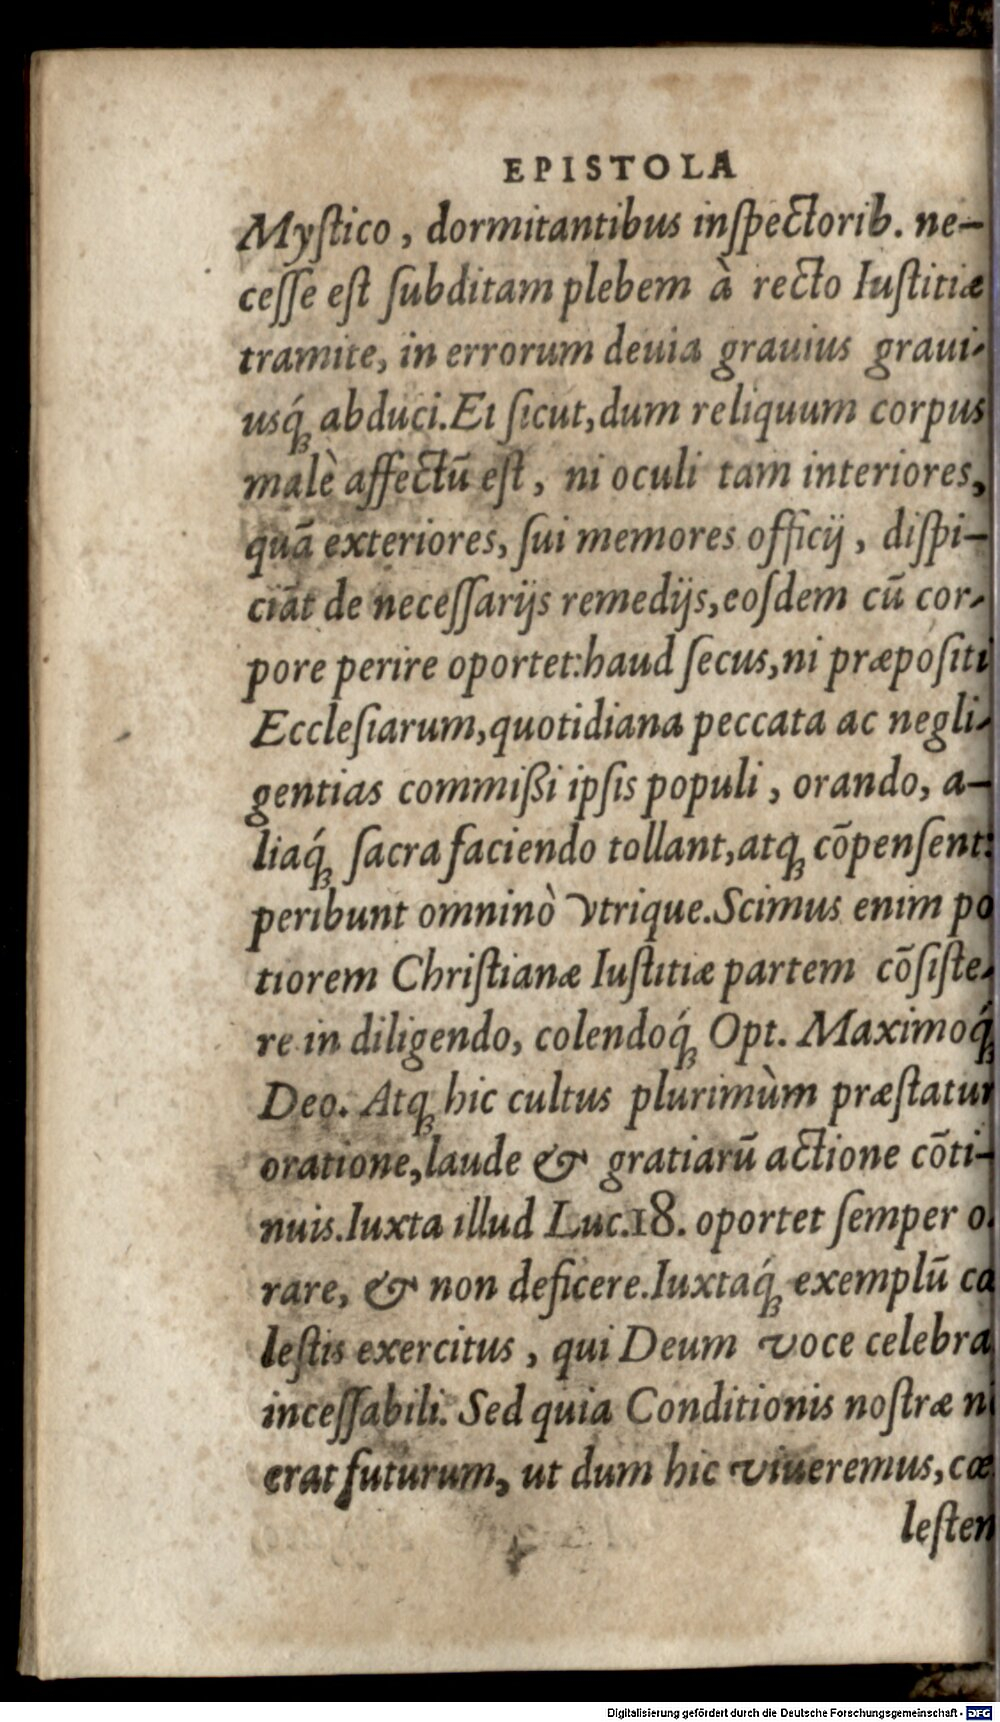 EPISTOLA
Myſtico, dormitantibus inſpectorib. ne-
ceſſe eſt ſubditam plebem à recto Iuſtitiæ
tramite, in errorum deuia grauius graui-
usq́ꝫ abduci. Et ſicut, dum reliquum corpus
malè affectū eſt, ni oculi tam interiores,
quā exteriores, ſui memores officij, diſpi-
ciāt de neceſſarijs remedijs, eoſdem cū cor-
pore perire oportet: haud ſecus, ni præpoſiti
Eccleſiarum, quotidiana peccata ac negli-
gentias commißi ipſis populi, orando, a-
liaq́ꝫ ſacra faciendo tollant, atqꝫ cōpenſent:
peribunt omninò vtrique. Scimus enim po
tiorem Chriſtianæ Iuſtitiæ partem cōſiſte-
re in diligendo, colendoq́ꝫ Opt. Maximoq́ꝫ
Deo. Atqꝫ hic cultus plurimùm præſtatur
oratione, laude & gratiarū actione cōti-
nuis. Iuxta illud Luc. 18. oportet ſemper o-
rare, & non deficere. Iuxtaq́ꝫ exemplū
leſtis exercitus, qui Deum voce celebra
inceſſabili. Sed quia Conditionis noſtræ
erat futurum, ut dum hic viueremus, cœ
leſten
Digitalisierung gefördert durch die Deutsche Forschungsgemeinschaft - DFG